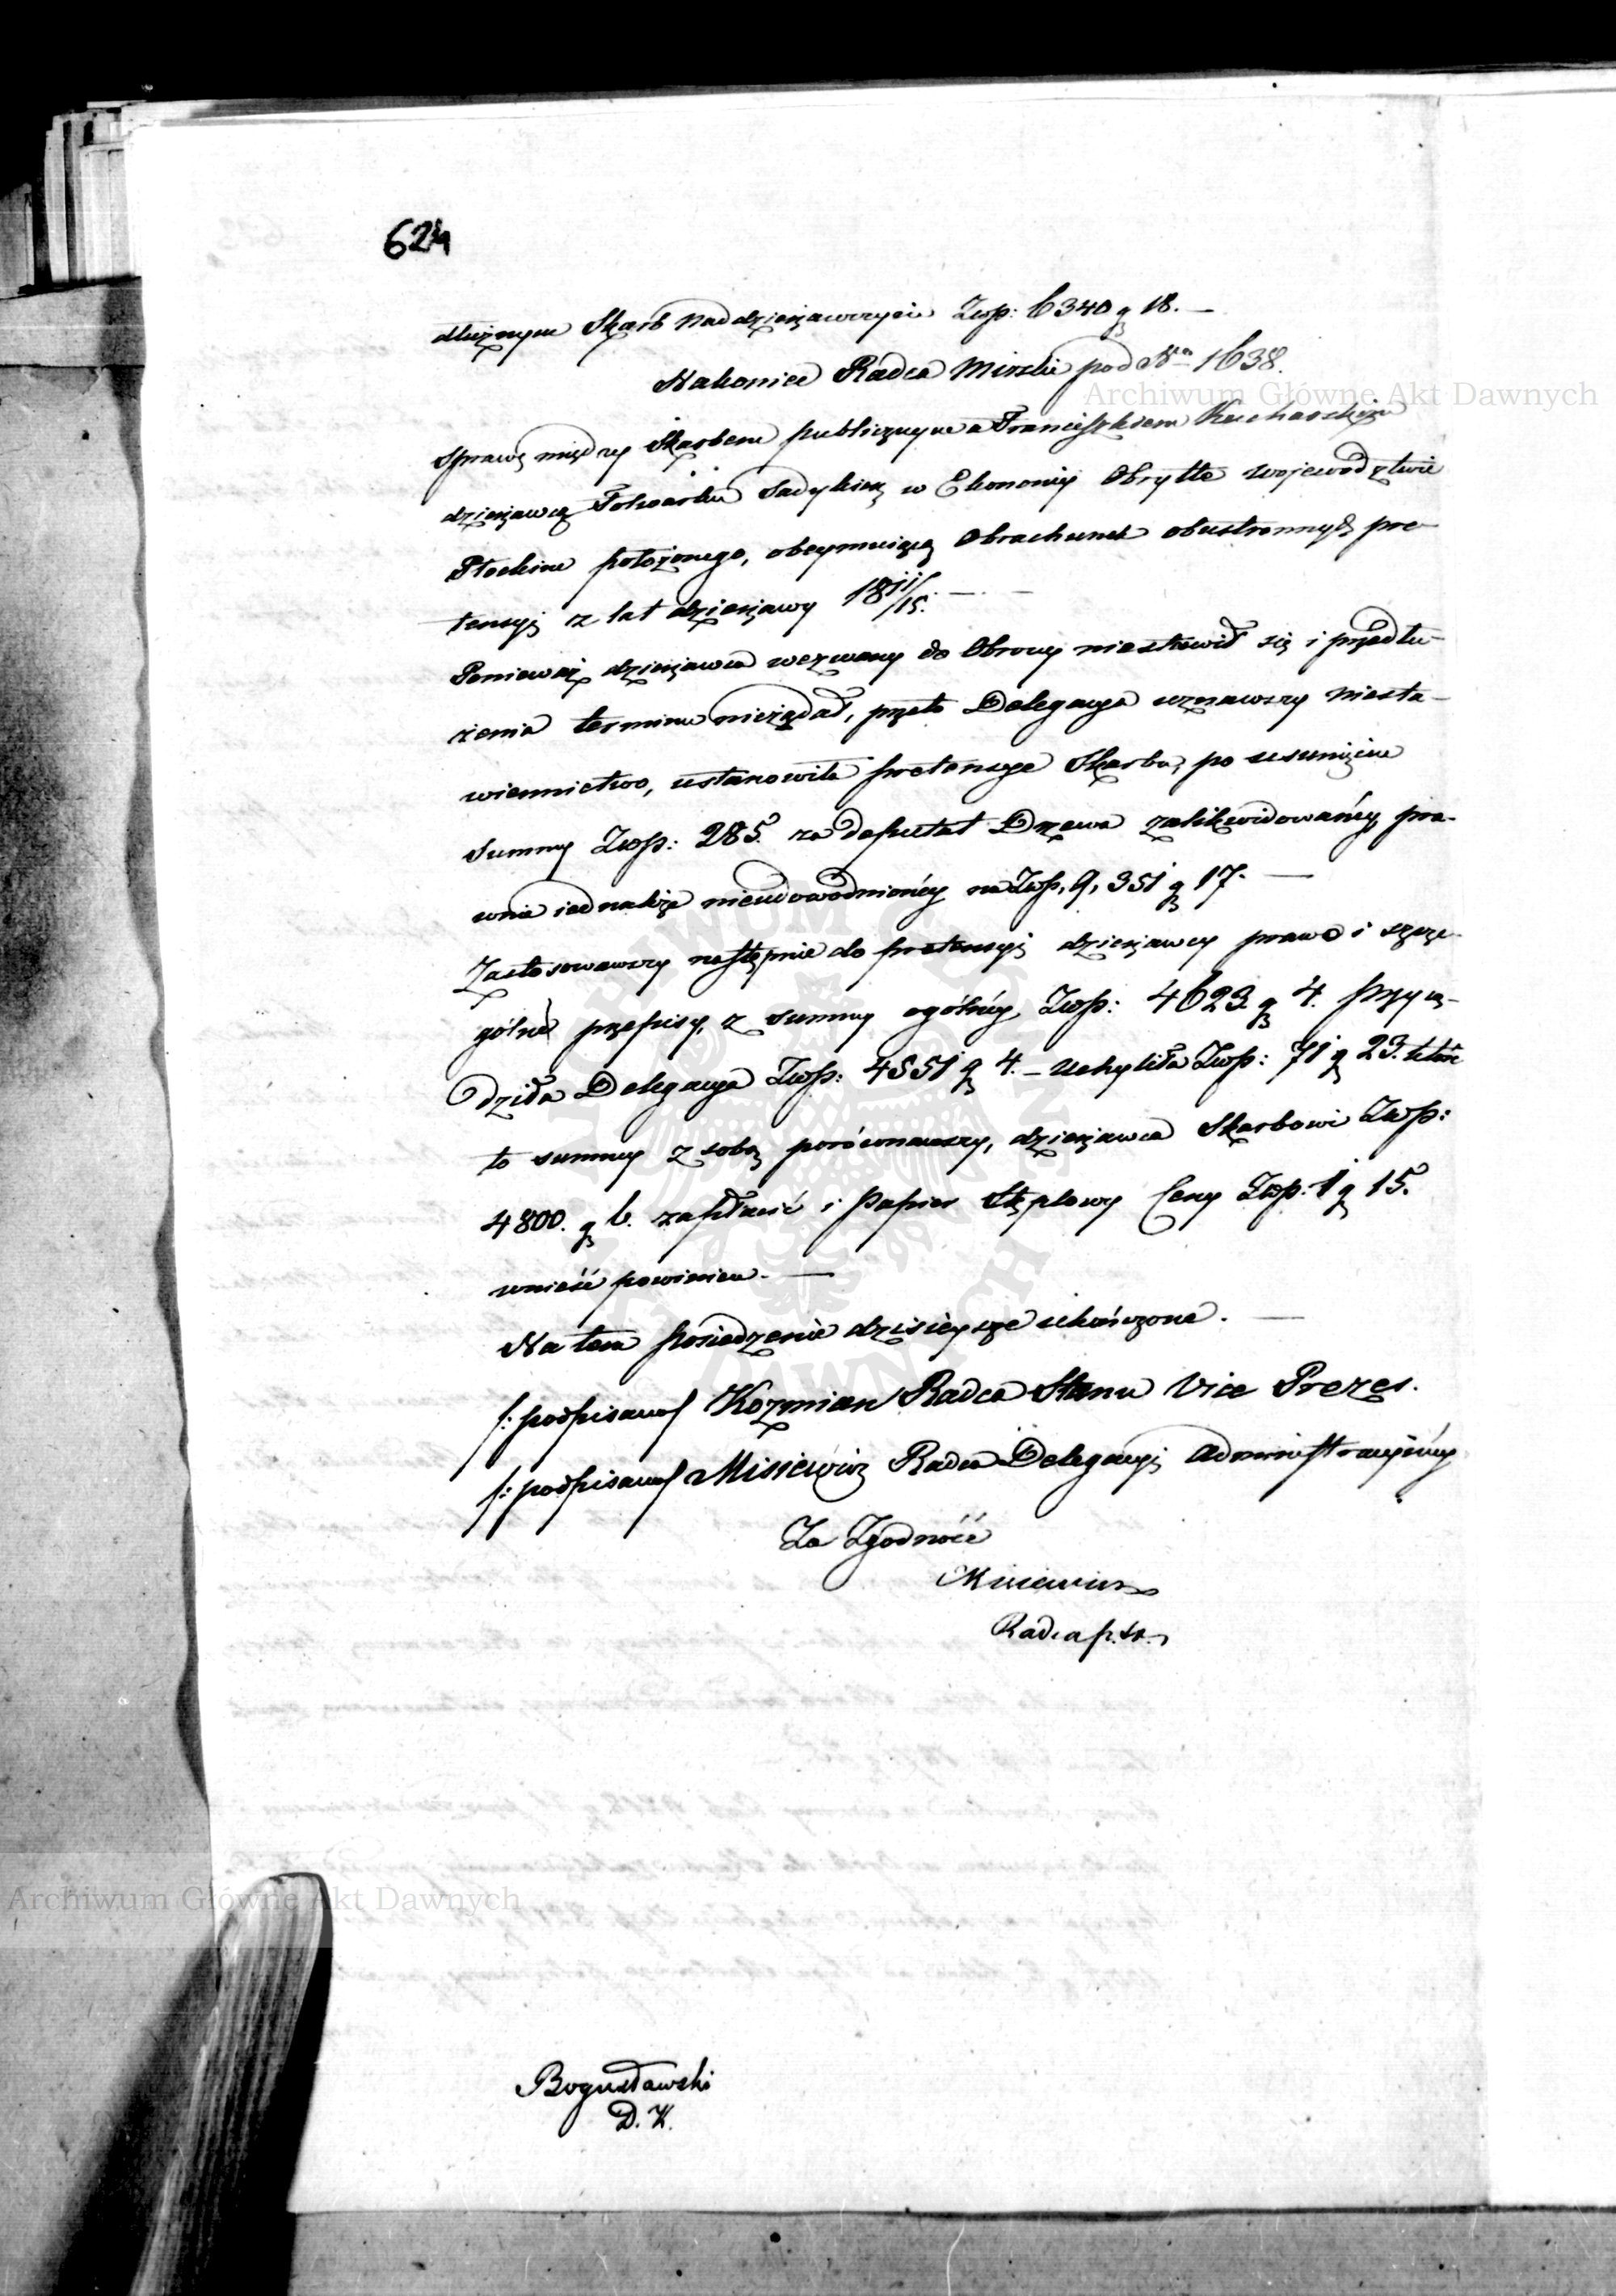 624
dłużnym Skarb Naddzierżawczycie Złłp: 6340 g 18. —
Nakoniec Radca Mirski pod Nº 1638.
Archiwum Główne Akt Dawnych
sprawę między Skarbem publicznym a Franciszkiem Kucharskim
dzierżawcą Folwarku Sadykierz w Ekonomij Obrytte Wojewodztwie
Płockim położonego, obeymuiącą Obrachunek obustronnych pre-
tensyj z lat dzierżawy 1811/15. — . —
Ponieważ dzierżawca wezwany do Obrony niestawił się i przedłu-
żenia terminu nieżądał, przeto Delegacya uznawszy niesta-
wiennictwo, ustanowiła pretensye Skarbu, po usunięciu
Summy Złłp: 285. za deputat Drzewa zalikwidowanéy, pra-
wnie iednakże nieudowodnionéy na Złłp. 9,351 g 17. —
Zastosowawszy następnie do pretensyj dzierżawcy prawo i szcze-
gólne przepisy, z summy ogólnéy Złłp: 4623 g 4. przyzą-
dziła Delegacya Złłp: 4551 g 4. — Uchyliła Złłp: 71 g 23. które
to summy z sobą porównawszy, dzierżawca Skarbowi Złłp:
4800. g 6. zapłacić i Papier Stęplowy Ceny Złłp. 1 g 15.
wnieść powinien. —
Na tem posiedzenie dzisieysze ukończone. —
/: podpisano / Kozmian Radca Stanu Vice Prezes.
/: podpisano / Misiewicz Radca Delegacyi Administracyinéy
Za Zgodność
Misiewicz
Radca
Archiwum Główne Akt Dawnych
Bogusławski
D. K.